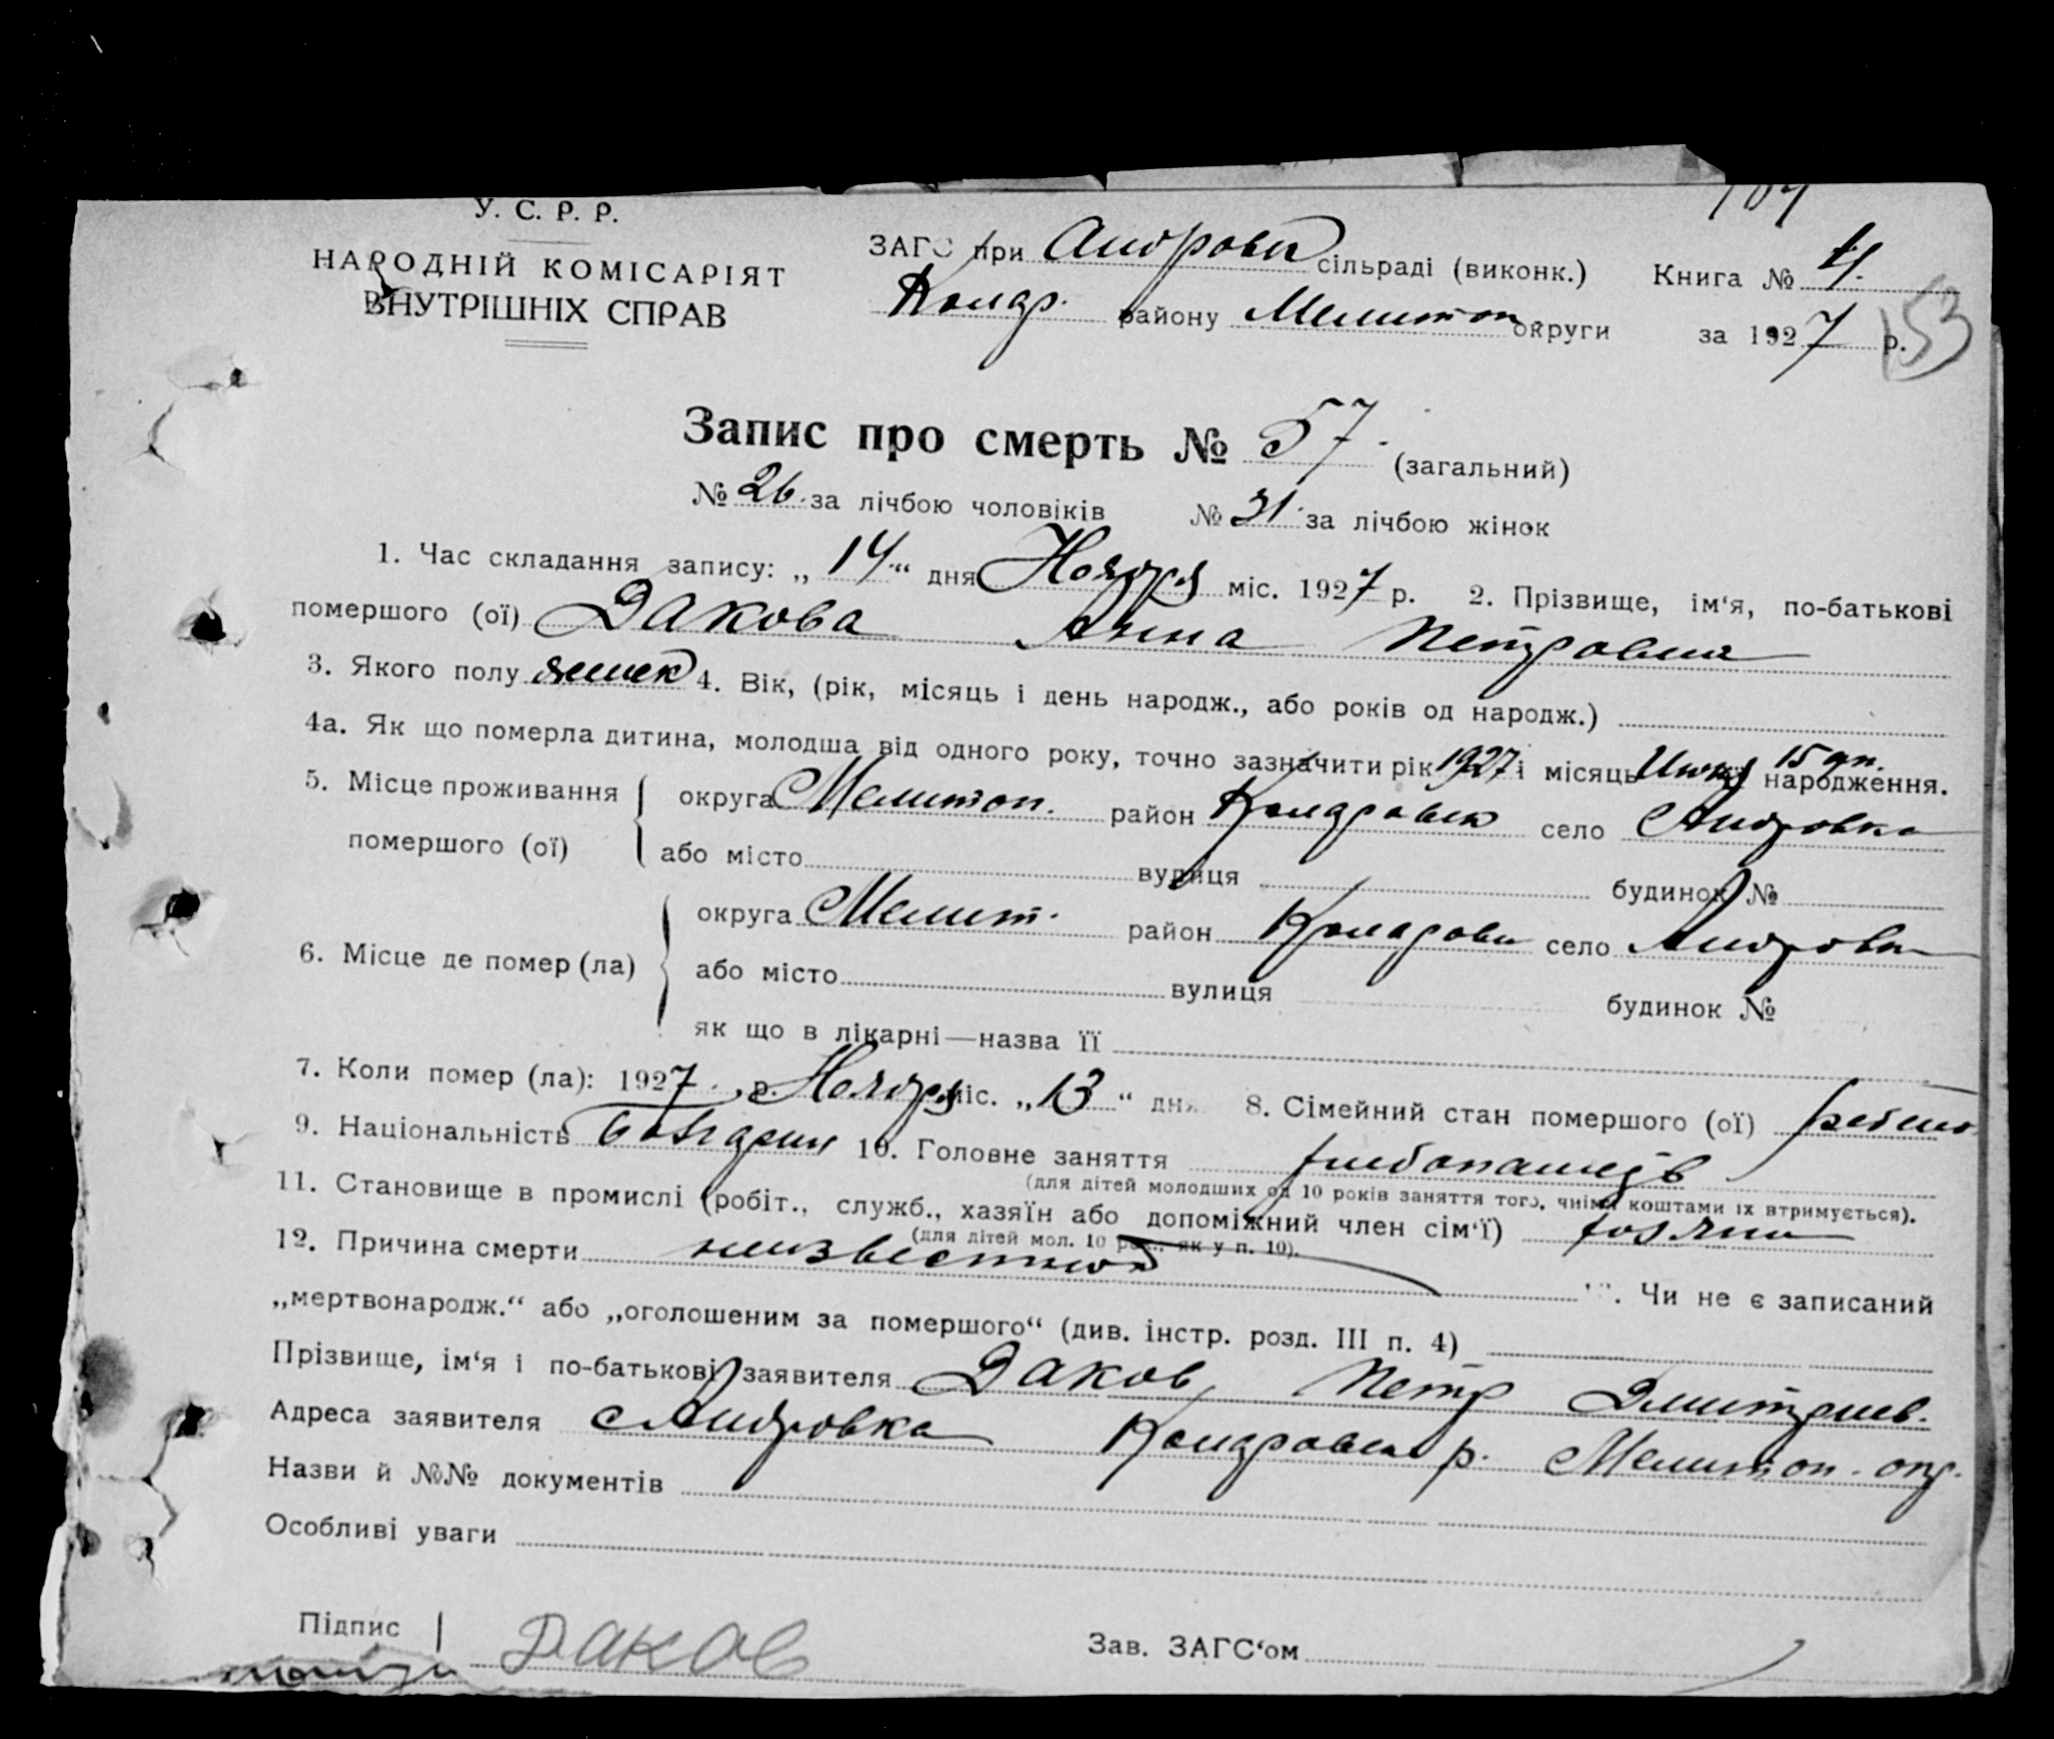 У. С. Р. Р.
НАРОДНІЙ КОМІСАРІЯТ
ВНУТРІШНІХ СПРАВ
ЗАГС при Андровк сільраді (виконк.) Книга № 4.
Колар. району Мелитоп округи за 1927 р.
153
Запис про смерть № 57. (загальний)
№ 26. за лічбою чоловіків № 31. за лічбою жінок
1. Час складання запису: „14“ дня Ноября міс. 1927 р. 2. Прізвище, ім‘я, по-батькові
помершого (ої) Дакова Анна Петровна
3. Якого полу женск 4. Вік, (рік, місяць і день народж., або років од народж.)
4а. Як що померла дитина, молодша від одного року, точно зазначити рік 1927 і місяць 15 дн. народження.
5. Місце проживання помершого (ої) округа Мелитоп. район Коларовск село Андровка
або місто вулиця будинок №
6. Місце де помер (ла) округа Мелит. район Коларовск село Андровк
або місто вулиця будинок №
як що в лікарні—назва її
7. Коли помер (ла): 1927 р. Ноября міс. „13“ дня 8. Сімейний стан помершого (ої)
9. Національність Болгарин 10. Головне заняття хлебопашев
(для дітей молодших од 10 років заняття того, чиїми коштами їх втримується).
11. Становище в промислі (робіт., служб., хазяїн або допоміжний член сім‘ї) хозяин
(для дітей мол. 10 рок., як у п. 10).
12. Причина смерти неизвестной 13. Чи не є записаний
„мертвонародж.“ або „оголошеним за помершого“ (див. інстр. розд. III п. 4)
Прізвище, ім‘я і по-батькові заявителя Даков Петр Дмитриев.
Адреса заявителя с Андровка Коларовск р. Мелитоп. окр.
Назви й №№ документів
Особливі уваги
Підпис Даков Зав. ЗАГС‘ом